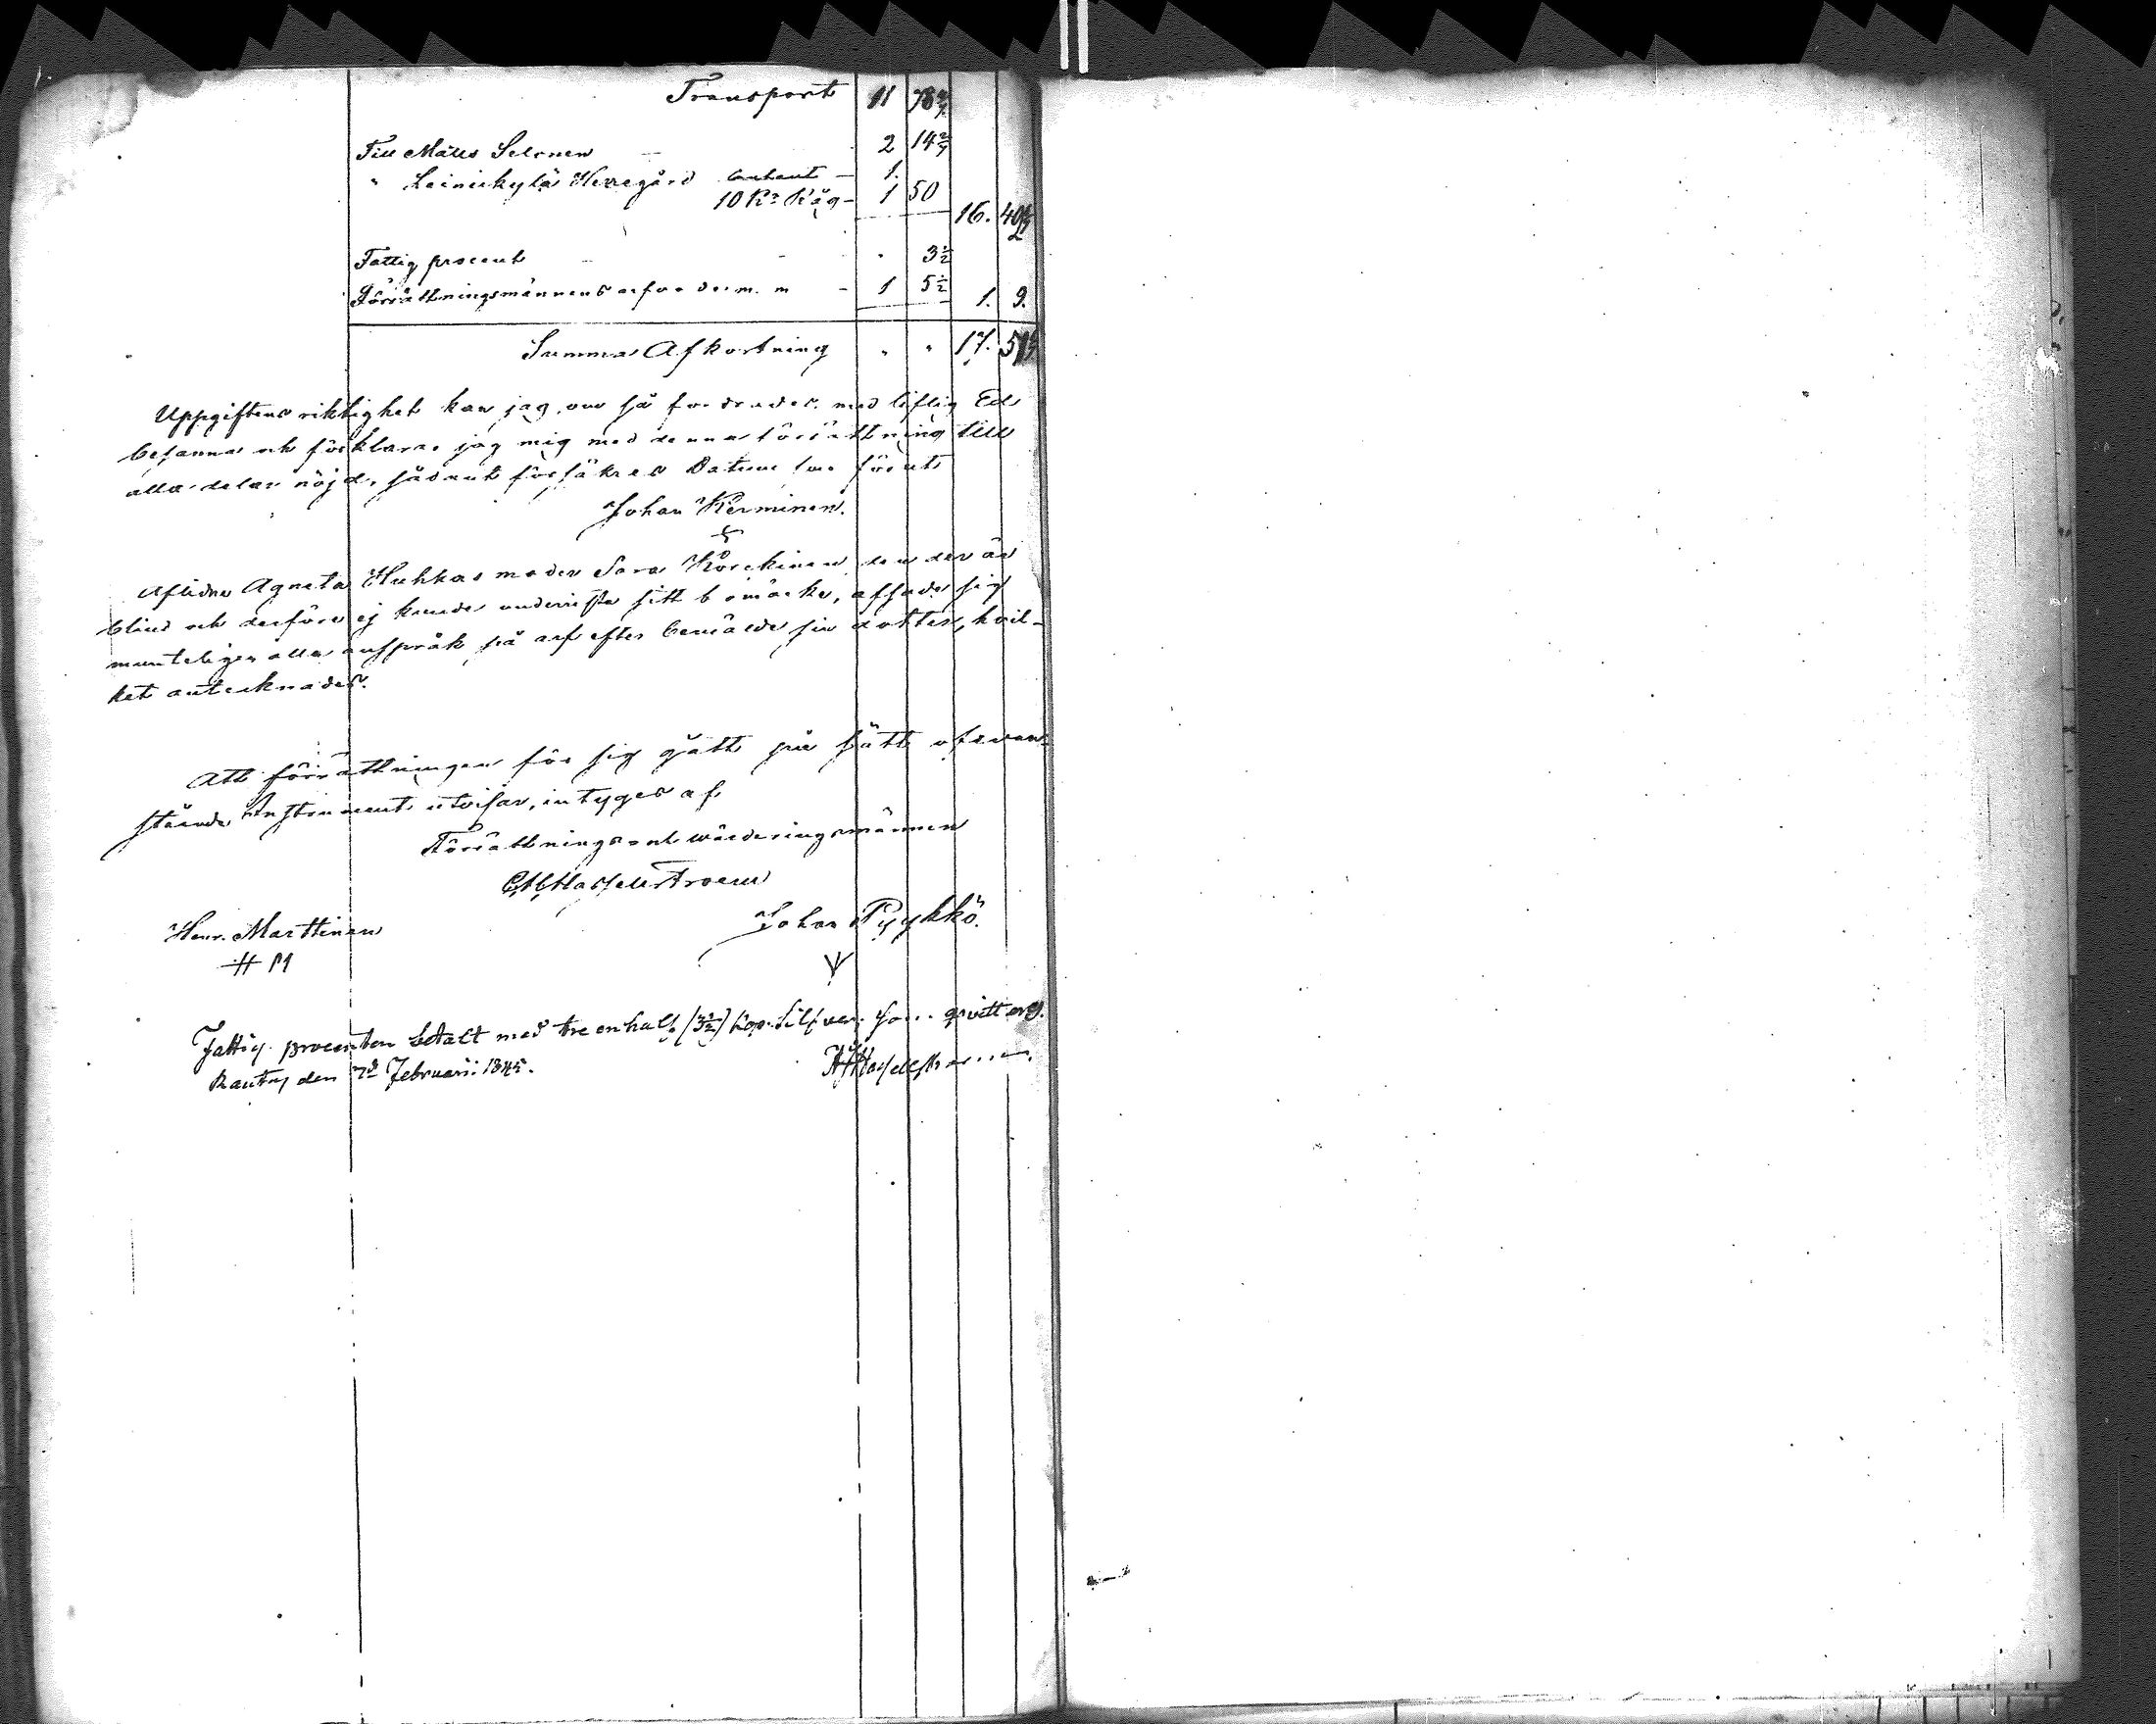 Transport 11 78 4/7
Till Matts Selonen — 2 14 2/7
" Leinickylä Herregård contant — 1.
10 K:r Råg — 1 50 16. 40 6/7
Fattig procent - - " 3 1/2
Förrättningsmännens arfvode m. m - 1 5 1/2 1. 9.
Summa Afkortning " " 17.
Uppgiftens riktighet kan jag, om så fordrades, med liflig Ed
besanna och förklarar jag mig med denna förrättning till
alla delar nöjd, sådant försäkras Datum som förut
Johan Kerminen.
Aflidne Agneta Huhkas moder Sara den der är
blind och derföre ej kunde underrista sitt bomärke, afsade sig
munteligen alla anspråk på arf efter bemälde sin dotter, hvil-
ket antecknades.
Att förrättningen för sig gått på sätt ofvan-
stående Instrument utvisar, intygas af
Förrättnings och wärderingsmännen
Hasselstroem
Henr. Marttinen Johan Pyykkö.
H M
Fattig procenten betalt med tre en half (3 1/2) Kop. Silfver, som qvitteras.
Rautus den 7d Februarii 1845. Hasselstroem.